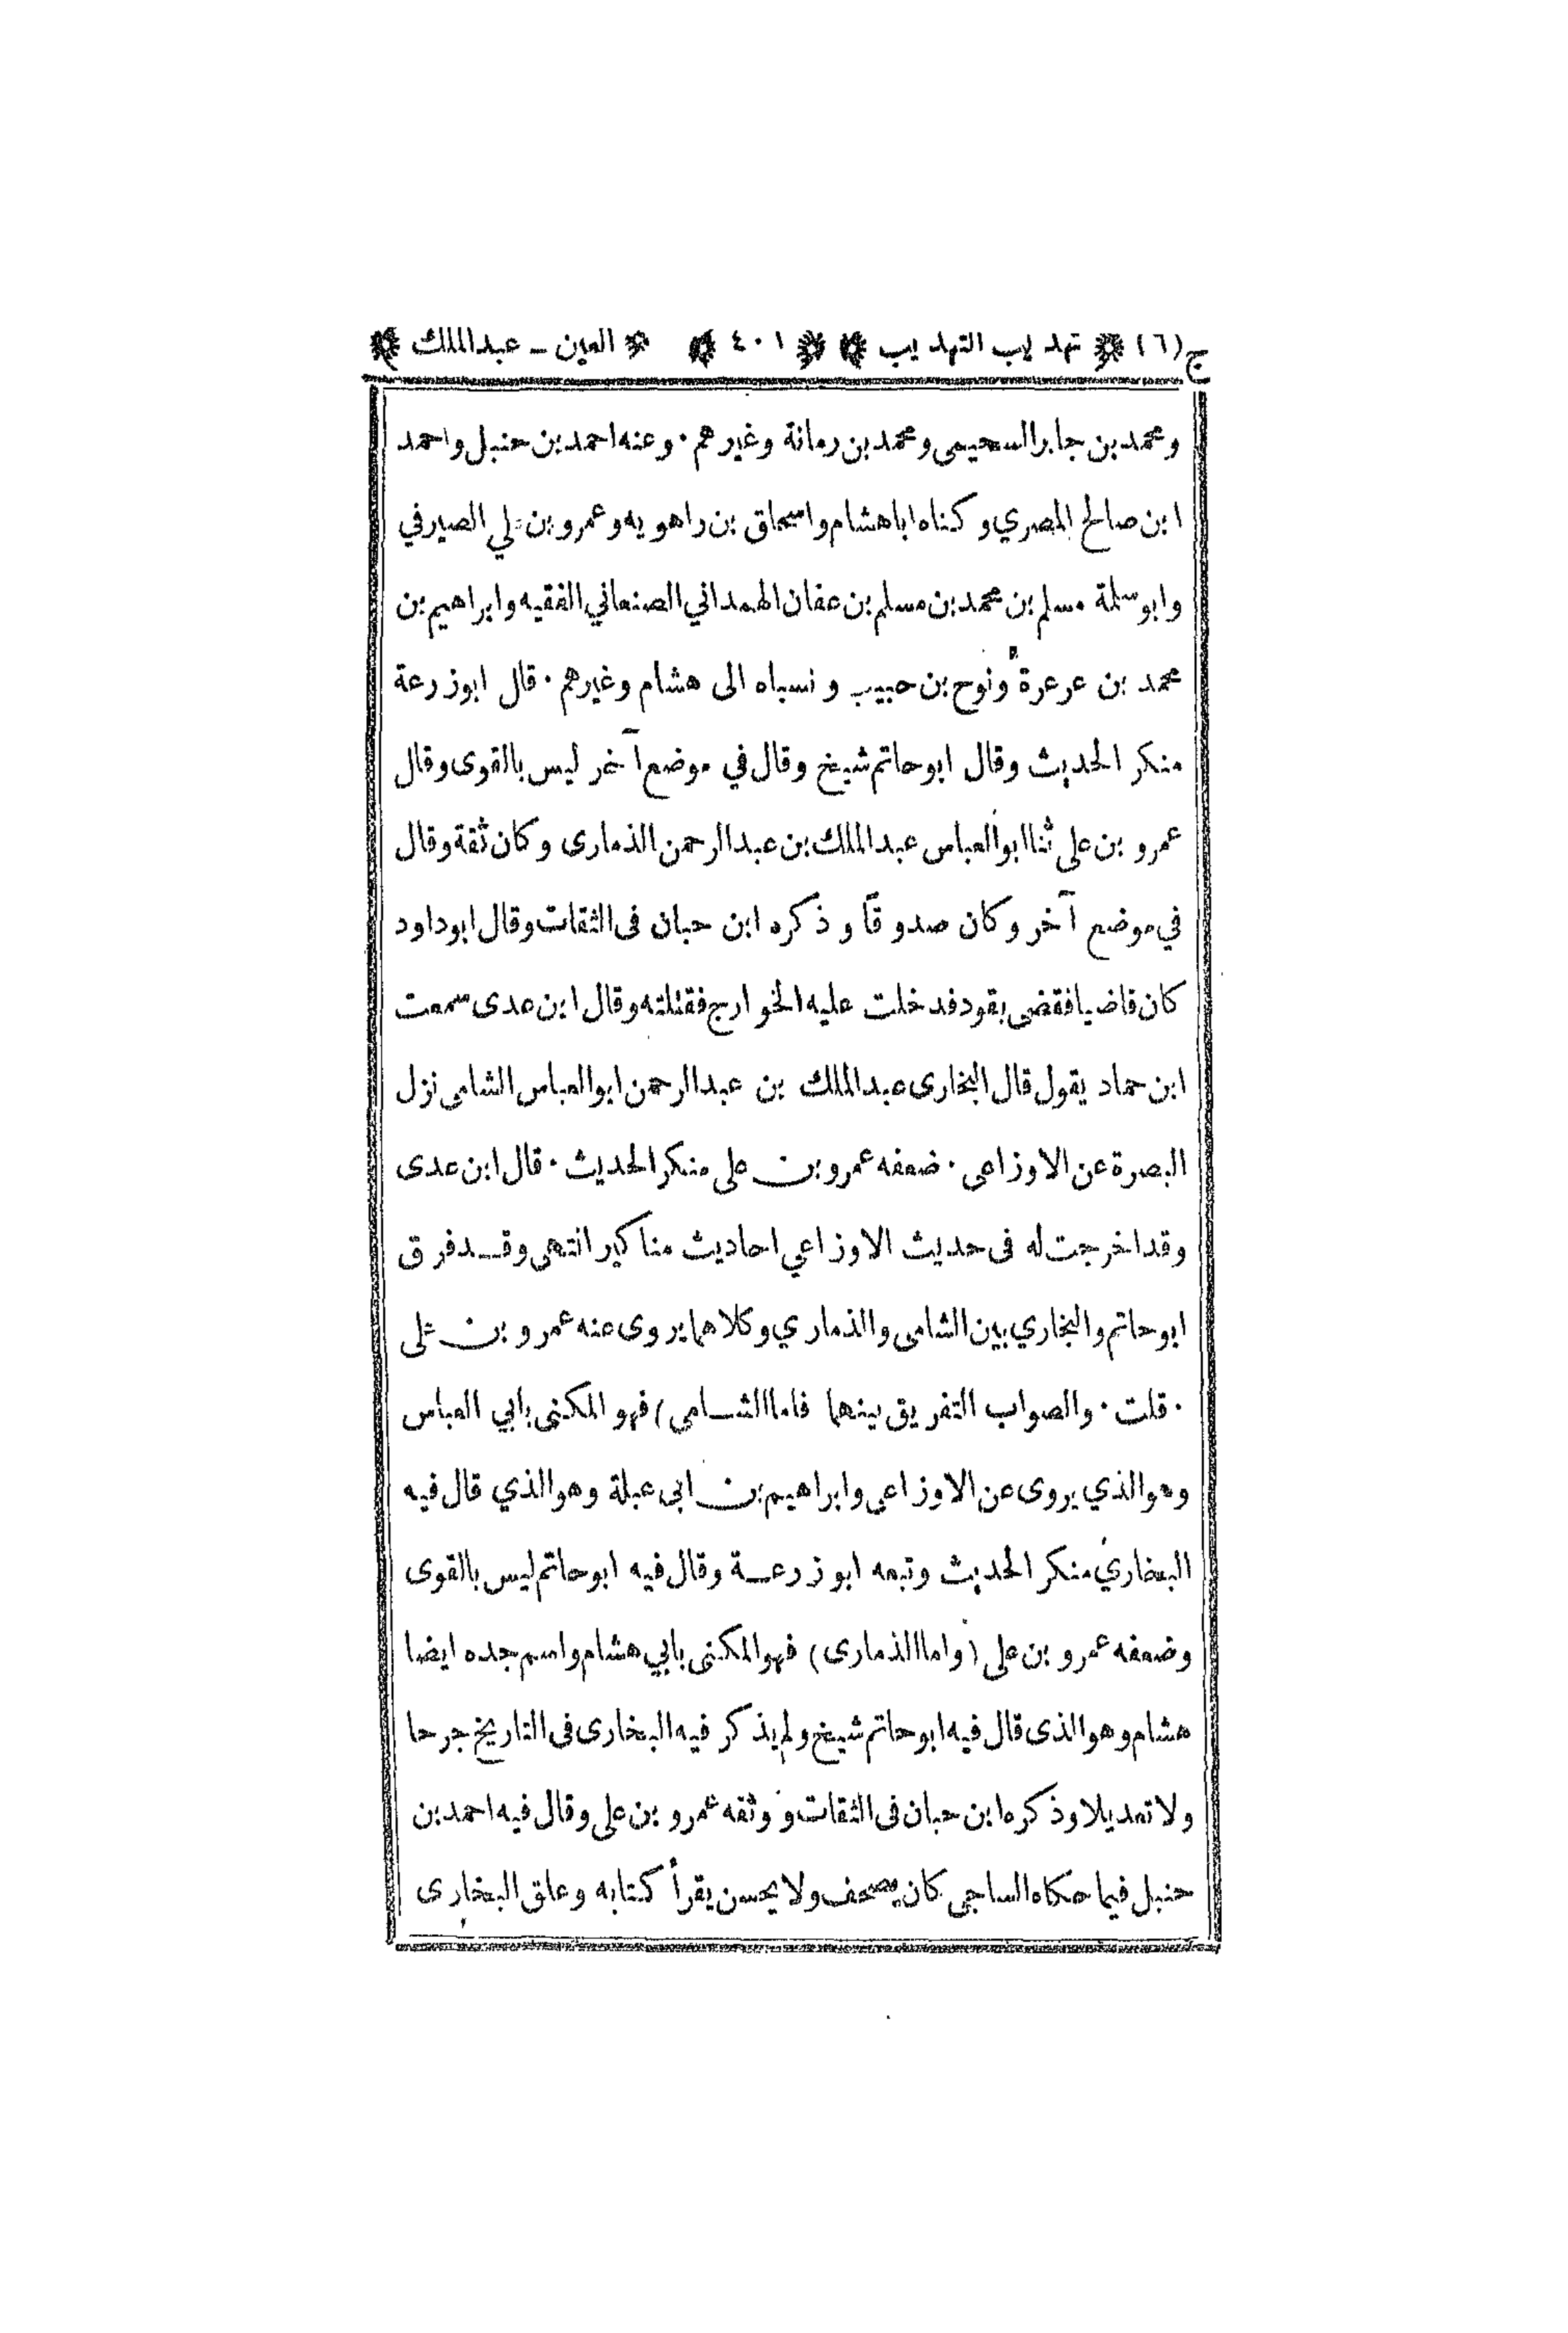 ج(٦) تهذيب التهذيب ٤٠١ العين - عبدالملك
ومحمد بن جابر السحيمى ومحمد بن رمانة وغيرهم . وعنه احمد بن حنبل واحمد
ابن صالح المصري وكناه اباهشام واسحاق بن راهويه وعمرو بن علي الصيرفي
وابو سلمة مسلم بن محمد بن مسلم بن عفان الهمداني الصنعاني الفقيه وابراهيم بن
محمد بن عرعرة ونوح بن حبيب ونسباه الى هشام وغيرهم . قال ابو زرعة
منكر الحديث وقال ابوحاتم شيخ وقال في موضع آخر ليس بالقوى وقال
عمرو بن على ثنا ابو العباس عبد الملك بن عبد الرحمن الذمارى وكان ثقة وقال
في موضع آخر وكان صدوقاً وذكره ابن حبان فى الثقات وقال ابوداود
كان قاضيا فقضى بقود فدخلت عليه الخوارج فقتلته وقال ابن عدى سمعت
ابن حماد يقول قال البخارى عبد الملك بن عبد الرحمن ابو العباس الشامى نزل
البصرة عن الاوزاعى . ضعفه عمرو بن على منكر الحديث . قال ابن عدى
وقد اخرجت له فى حديث الاوزاعي احاديث مناكير انتهى وقد فرق
ابوحاتم والبخاري بين الشامى والذماري وكلاهما يروى عنه عمرو بن على
. قلت . والصواب التفريق بينهما فاما الشامى) فهو المكنى بابي العباس
وهو الذي يروى عن الاوزاعى وابراهيم بن ابى عبلة وهو الذي قال فيه
البخاري منكر الحديث وتبعه ابو زرعة وقال فيه ابوحاتم ليس بالقوى
وضعفه عمرو بن على (واما الذمارى) فهو المكنى بابي هشام واسم جده ايضا
هشام وهو الذى قال فيه ابوحاتم شيخ ولم يذكر فيه البخارى فى التاريخ جرحا
ولا تعديلا وذكره ابن حبان فى الثقات و وثقه عمرو بن على وقال فيه احمد بن
حنبل فيما حكاه الساجى كان يصحف ولا يحسن يقرأ كتابه وعلق البخارى